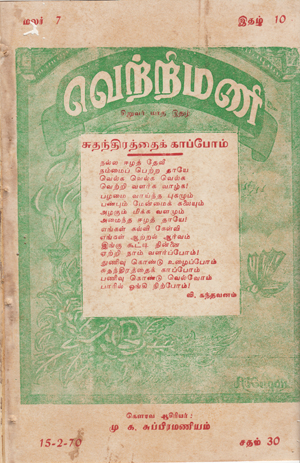 மலர் 7 இதழ் 10
வெற்றிமணி
சிறுவர் மாத இதழ்
சுதந்திரத்தைக் காப்போம்
நல்ல ஈழத் தேவி
நம்மைப் பெற்ற தாயே
வெல்க வெல்க வெல்க
வெற்றி வளர்க வாழ்க!
பழமை வாய்ந்த புகழும்
பண்பும் மேன்மைக் கலையும்
அழகும் மிக்க வளமும்
அமைந்த ஈழத் தாயே!
எங்கள் கல்வி கேள்வி
எங்கள் ஆற்றல் ஆர்வம்
இங்கு கூட்டி நின்னை
ஏற்றி நாம் வளர்ப்போம்!
துணிவு கொண்டு உழைப்போம்
சுதந்திரத்தைக் காப்போம்
பணிவு கொண்டு வெல்வோம்
பாரில் ஓங்கி நிற்போம்!
வி. கந்தவனம்
கௌரவ ஆசிரியர்:
மு க. சுப்பிரமணியம்
15-2-70 சதம் 30